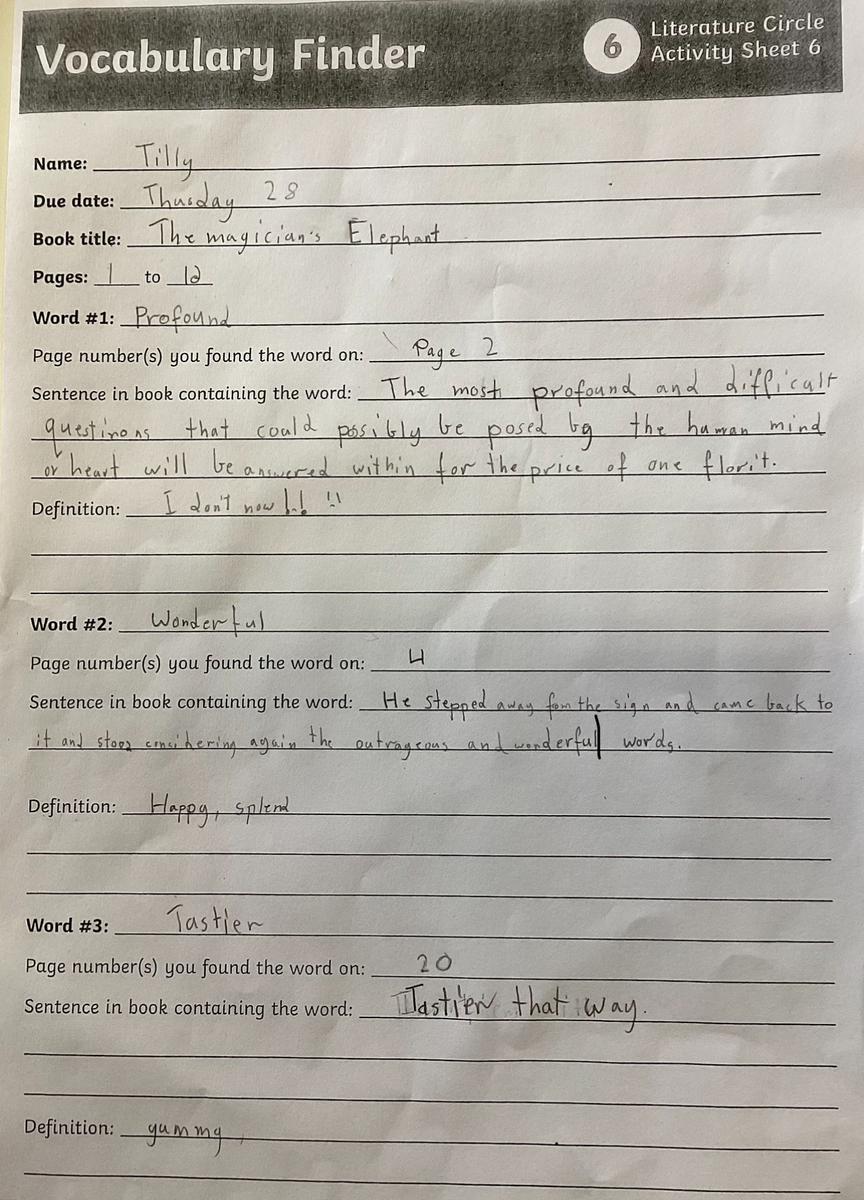 Vocabulary Finder
6
Literature Circle
Activity Sheet 6
Name: Tilly
Due date: Thusday 28
Book title: The magician's Elephant
Pages: 1 to 12
Word #1: Profound
Page number(s) you found the word on: Page 2
Sentence in book containing the word: The most profound and difficult
questinons that could posibly be posed by the human mind
or heart will be answered within for the price of one florit.
Definition: I don't now !! !!
Word #2: Wonderful
Page number(s) you found the word on: 4
Sentence in book containing the word: He stepped away fom the sign and came back to
it and stood again the outrageous and wonderful words.
Definition: Happy, splend
Word #3: Tastier
Page number(s) you found the word on: 20
Sentence in book containing the word: Tastier that way.
Definition: yummy,